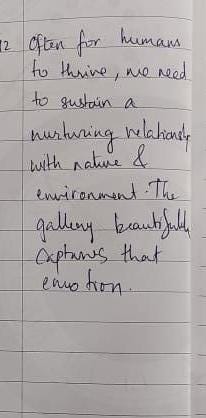 12 Often for humans
to thrive, we need
to sustain a
nurturing relationship
with nature &
environment. The
gallery beautifully
captures that
emotion.